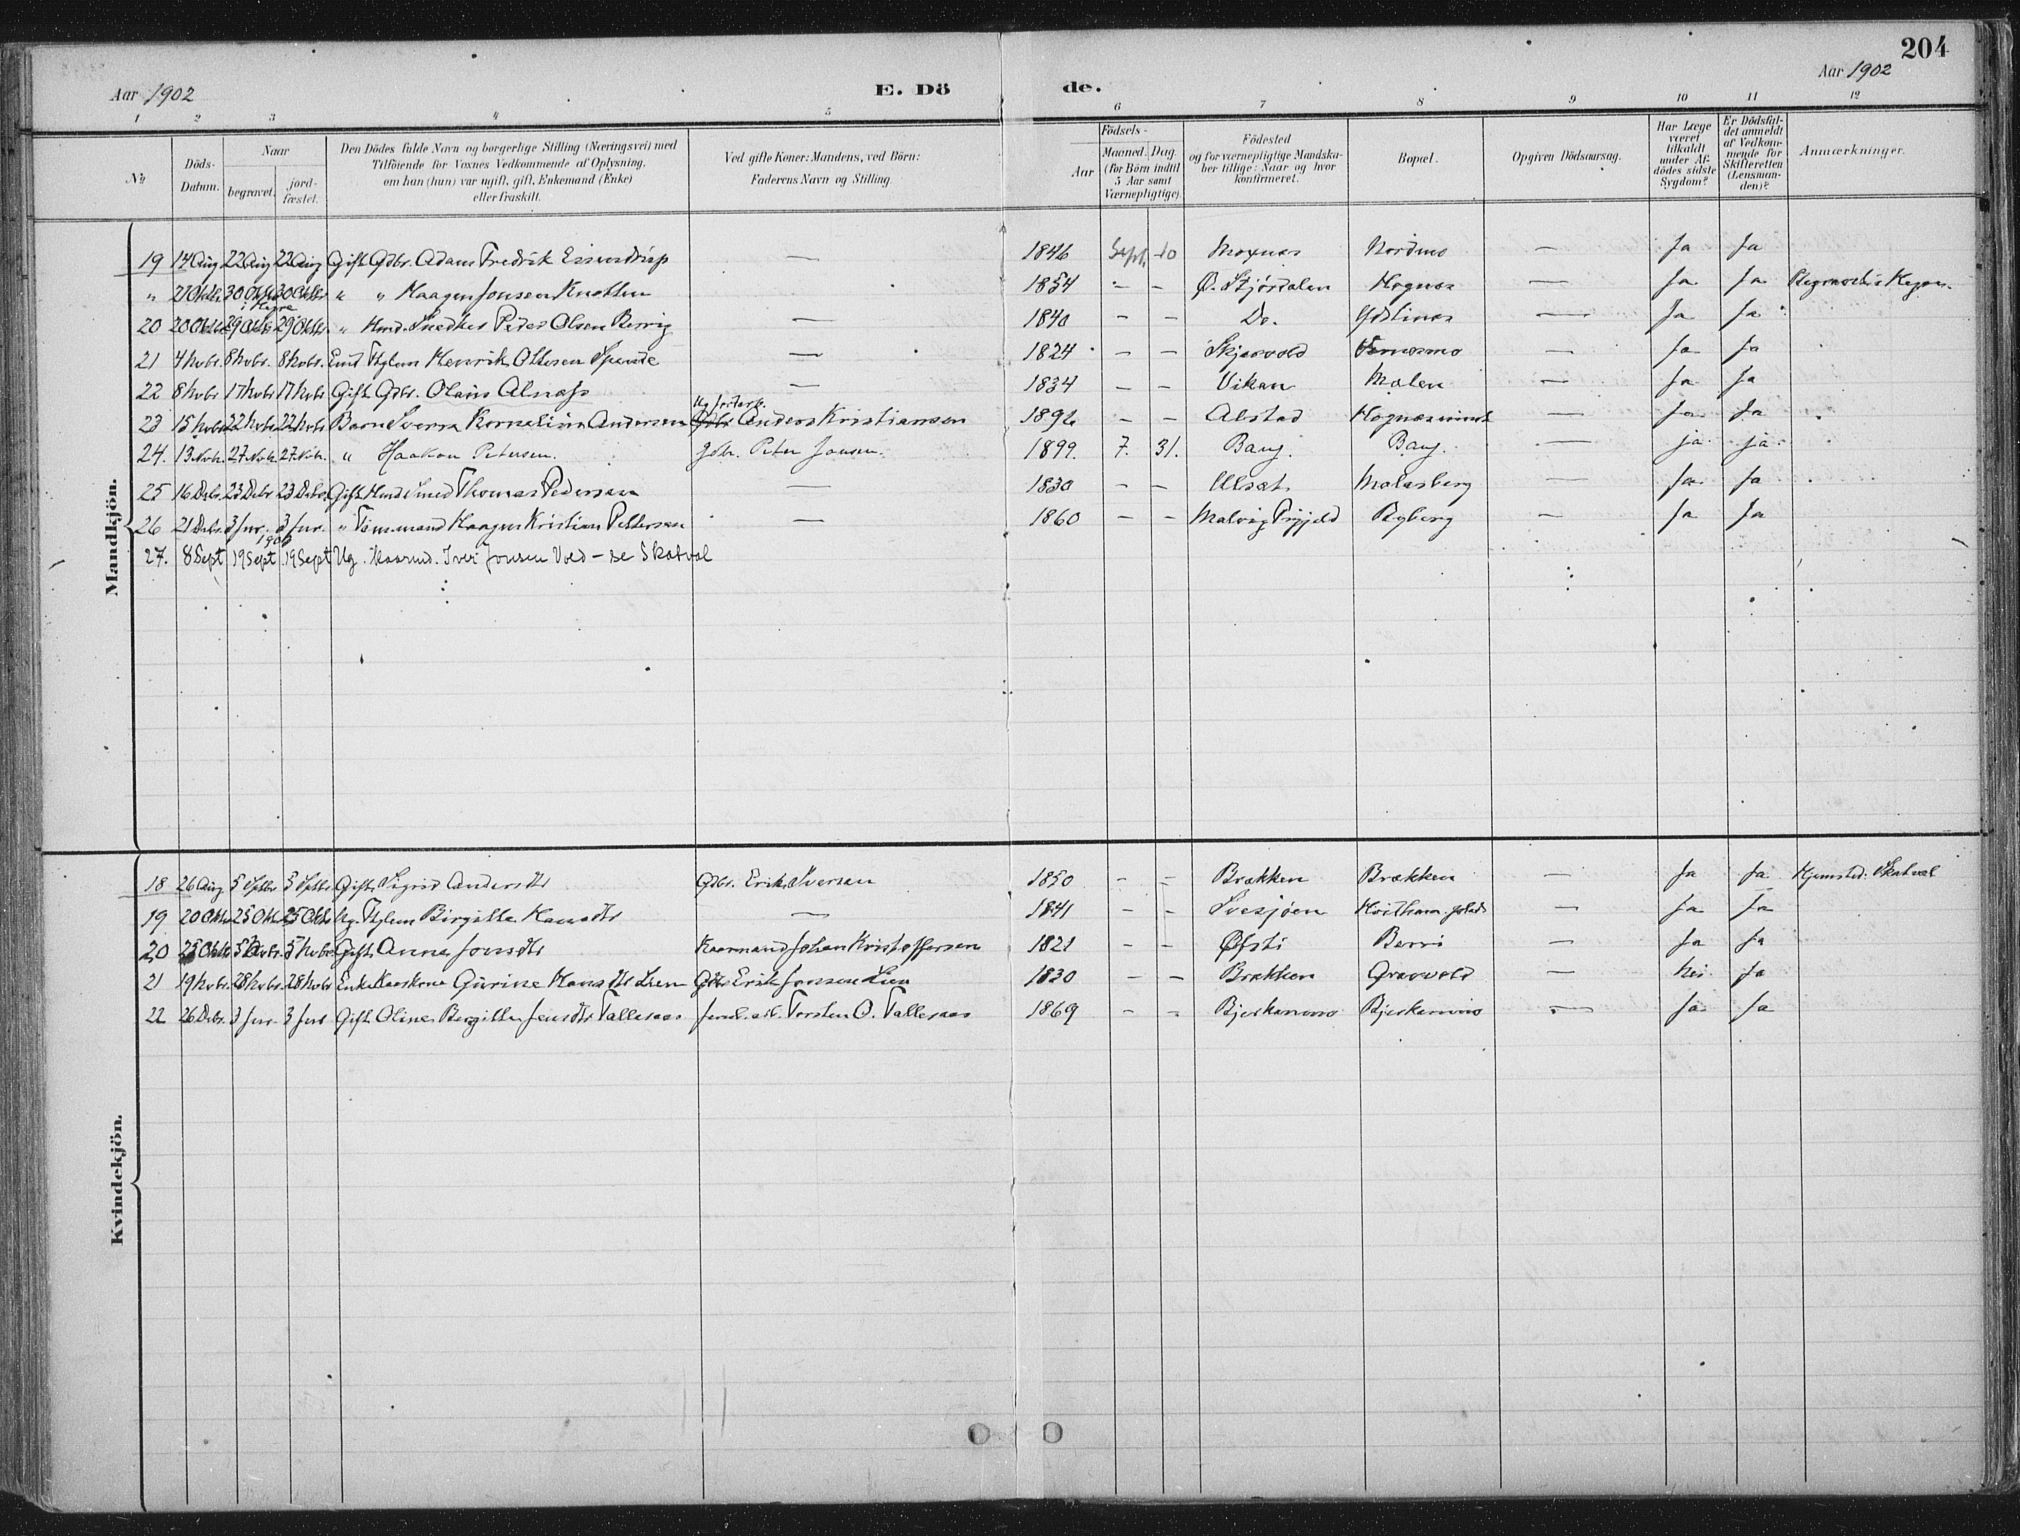 204
Aar 1902 E. Dö de. Aar 1902
1 2 3 4 5 6 7 8 9 10 11 12
№ Döds-Datum. Naar begravet. jord-fæstet. Den Dödes fulde Navn og borgerlige Stilling (Næringsvei) med Tilföiende for Voxnes Vedkommende af Oplysning, om han (hun) var ugift, gift, Enkemand (Enke) eller fraskilt. Ved gifte Koner: Mandens, ved Börn: Faderens Navn og Stilling. Födsels- Aar Maaned. Dag (for Börn indtil 5 Aar samt Værnepligtige). Födested og for værnepligtige Mandskaber tillige: Naar og hvor konfirmeret. Bopæl. Opgiven Dödsaarsag. Har Læge været tilkaldt under Afdödes sidste Sygdom? Er Dödsfaldet anmeldt af Vedkommende for Skifteretten (Lensmanden)? Anmærkninger.
Mandkjön.
19 14 Aug 22 Aug 22 Aug Gift Gdbr. Adam Fredrik — 1846 Sept. 10 Moxnes Nordmo — Ja Ja
" 21 Oktbr 30 Oktbr i Hegre 30 Oktbr " " Haagen Jonsen Knotten 1854 - — Ø. Stjørdalen Hognes — Ja Ja
20 20 Oktbr 29 Oktbr 29 Oktbr. " Hmd. Snedker Peder Olsen Berrig — 1840 — — Do. — Ja Ja
21 4 Nvbr. 8 Nvbr. 8 Nvbr. Henrik Ottesen — 1824 — — Skjervold — Ja Ja
22 8 Nvbr 17 Nvbr 17 Nvbr Gift Gdbr. Olaus Alnæss — 1834 — — Vikan Mælen — Ja Ja
23 15 Nvbr 22 Nvbr 22 Nvbr Barn Sverre Kornelius Andersen Anders Kristiansen 189 — — Alstad — Ja Ja
24. 13 Novbr. 27 Novbr. 27 Novbr. " Haakon Petersen. gdbr. Peter Jonsen. 1899. 7. 31. Bang. Bang. — ja ja
25 16 Debr. 23 Debr 23 Debr. Gift Hmd Smed Thomas Pedersen — 1830 — — Ulset. — Ja Ja
26 21 Debr. 3 Jnr. 3 Jnr. 190 " Tømmermand Haagen Kristian Pettersen — 1860 — — Malvig Prgjeld Ryberg — Ja Ja
27. 8 Sept 19 Sept 19 Sept Ug. Kaarmd. Iver Jonsen Vold – se Skatval
Kvindekjön.
18 26 Aug 5 Sptbr 5 Sptbr Gift Sigrid Andersdtr Gdbr. Erik Iversen 1850 - - Brækken Brækken — Ja Ja Hjemsted: Skatval
19 20 Oktbr 25 Oktbr 25 Oktbr Ug. Birgitte Hansdtr — 1841 - - — Ja Ja
20 25 Oktbr 5 Nvbr. 5 Nvbr Gift Anne Jonsdtr Kaarmand Johan Kristoffersen 1821 - - Øfsti Berri — Ja Ja
21 19 Nvbr. 28 Nvbr. 28 Nvbr Enke Kaarkone Gurine Hansdtr Lien Gdbr Erik Jonsen Lien 1830 - - Brækken Grævvold — Nei Ja
22 26 Debr. 3 Jnr. 3 Jnr Gift Oline Bergitte Jensdtr Tallesaas Jernb. arb. Torsten O. Tallesaas 1869 - - Bjerkanmo Bjerkanmo — Ja Ja